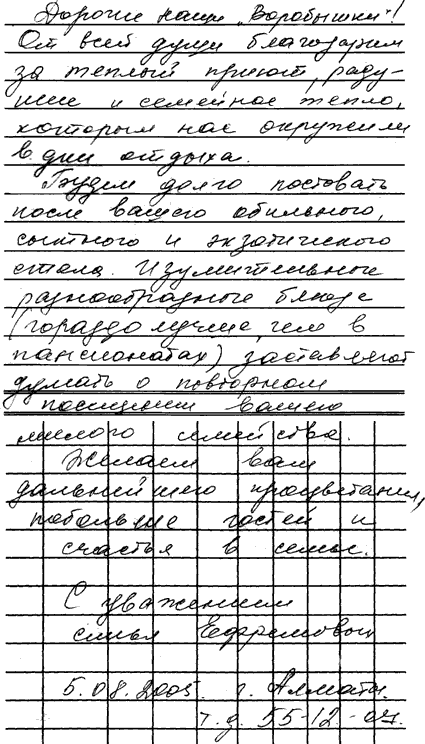 Дорогие наши „Воробышки"!
От всей души благодарим
за теплый приют, раду-
шие и семейное тепло,
которым нас окружили
в дни отдыха.
Будем долго постовать
после вашего обильного,
сытного и экзотического
стола. Изумительные
разнообразные блюда
(гораздо лучше, чем в
пансионатах) заставляют
думать о повторном
посещении вашего
милого семейства.
Желаем вам
дальнейшего процветания,
побольше гостей и
счастья в семье.
С уважением
семья Ефремовых
5.08.2005. г. Алматы.
т.д. 55-12-07.